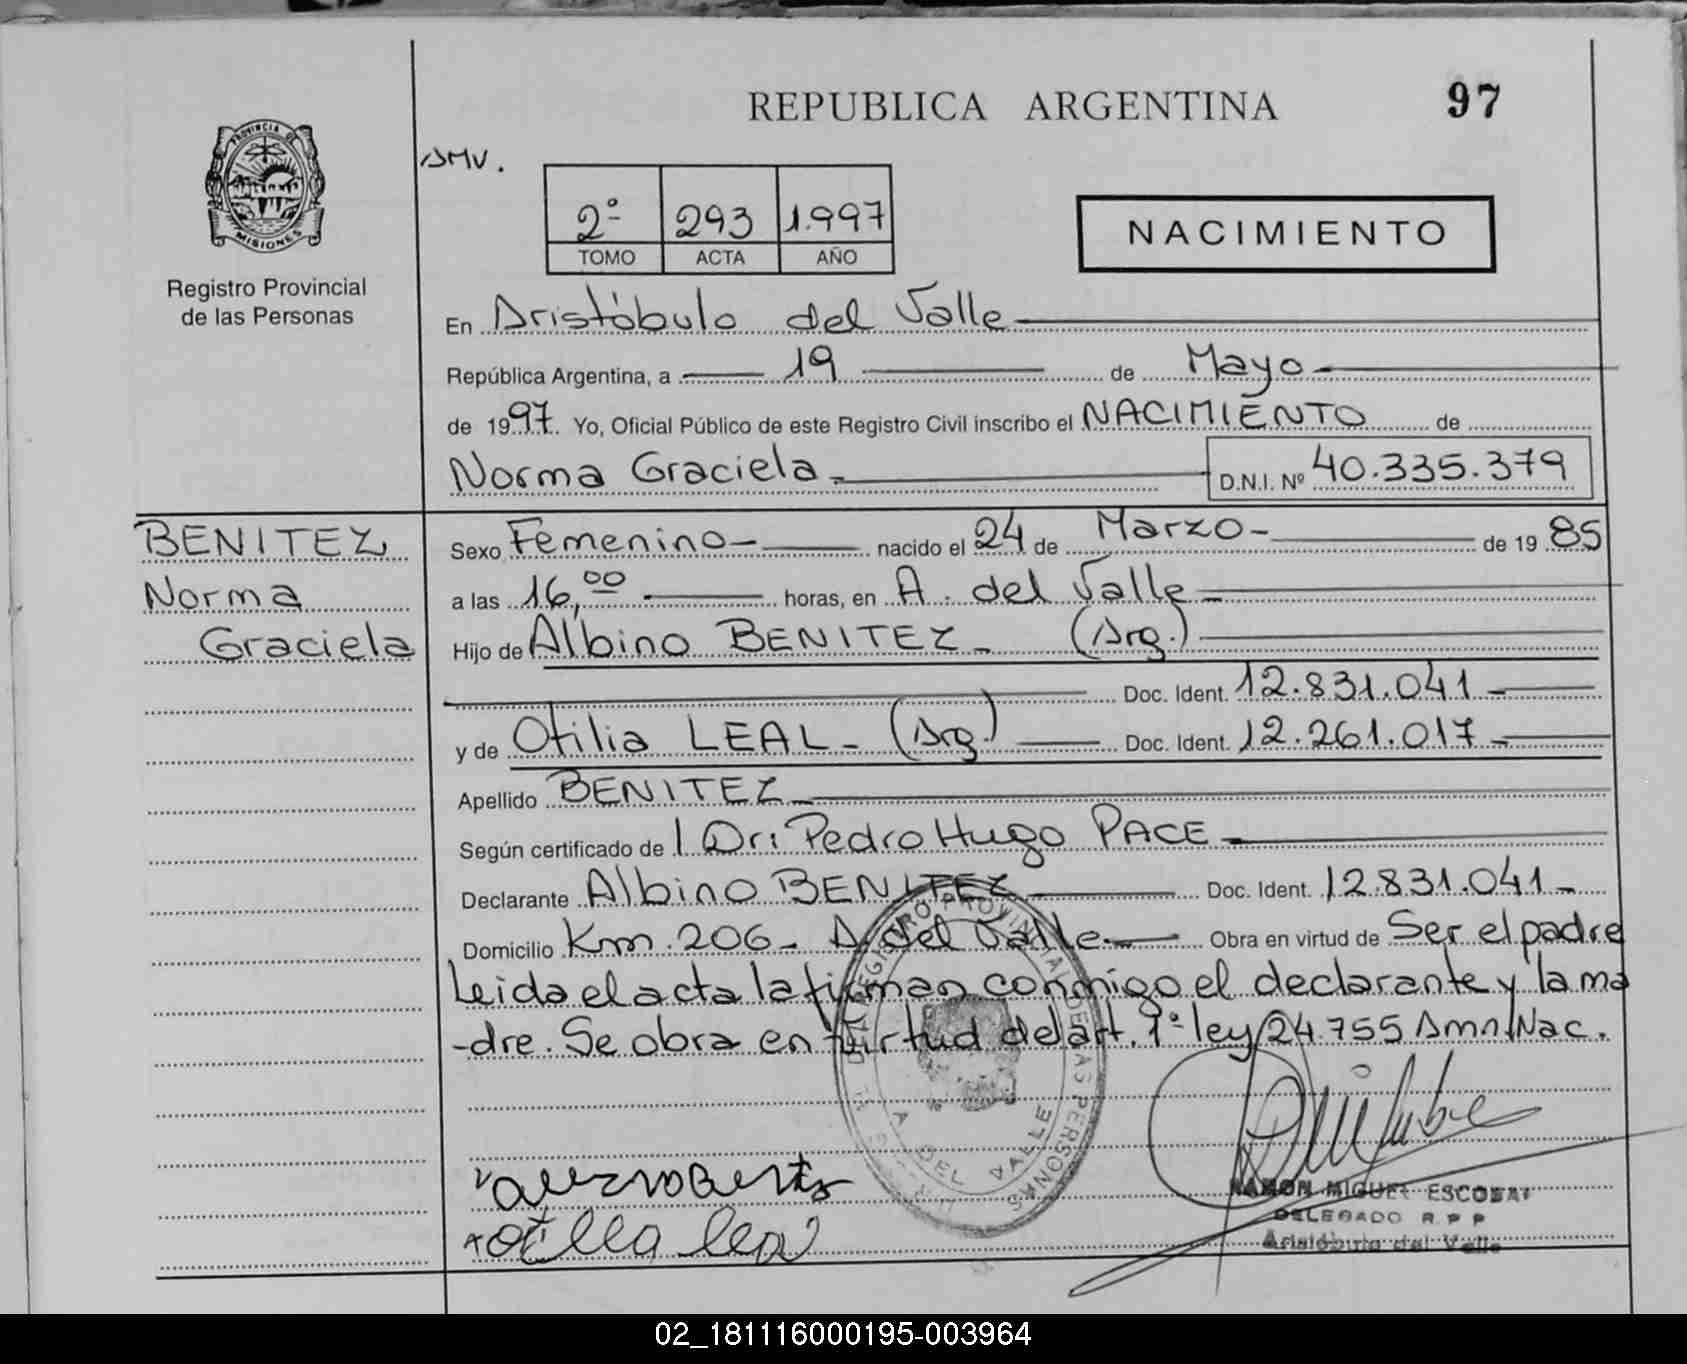 REPUBLICA ARGENTINA 97
PROVINCIA DE
MISIONES
Registro Provincial
de las Personas
AMV.
2º 293 1.997
TOMO ACTA AÑO
NACIMIENTO
En Aristóbulo del Valle
República Argentina, a 19 de Mayo
de 1997. Yo, Oficial Público de este Registro Civil inscribo el NACIMIENTO de
Norma Graciela D.N.I. Nº 40.335.379
BENITEZ
Norma
Graciela
Sexo Femenino nacido el 24 de Marzo de 1985
a las 16,00 horas, en A. del Valle
Hijo de Albino BENITEZ (Arg.)
Doc. Ident. 12.831.041
y de Otilia LEAL (Arg.) Doc. Ident. 12.261.017
Apellido BENITEZ
Según certificado de Dr: Pedro Hugo PACE
Declarante Albino BENITEZ Doc. Ident. 12.831.041
Domicilio Km. 206 A. del Valle Obra en virtud de Ser el padre
Leida el acta la firman conmigo el declarante y la ma
-dre. Se obra en virtud del art. 1º ley 24.755 Amn. Nac.
REGISTRO PROVINCIAL DE LAS PERSONAS
A DEL VALLE
RAMON MIGUEL ESCOBAR
DELEGADO R P P
Aristóbulo del Valle
02_181116000195-003964